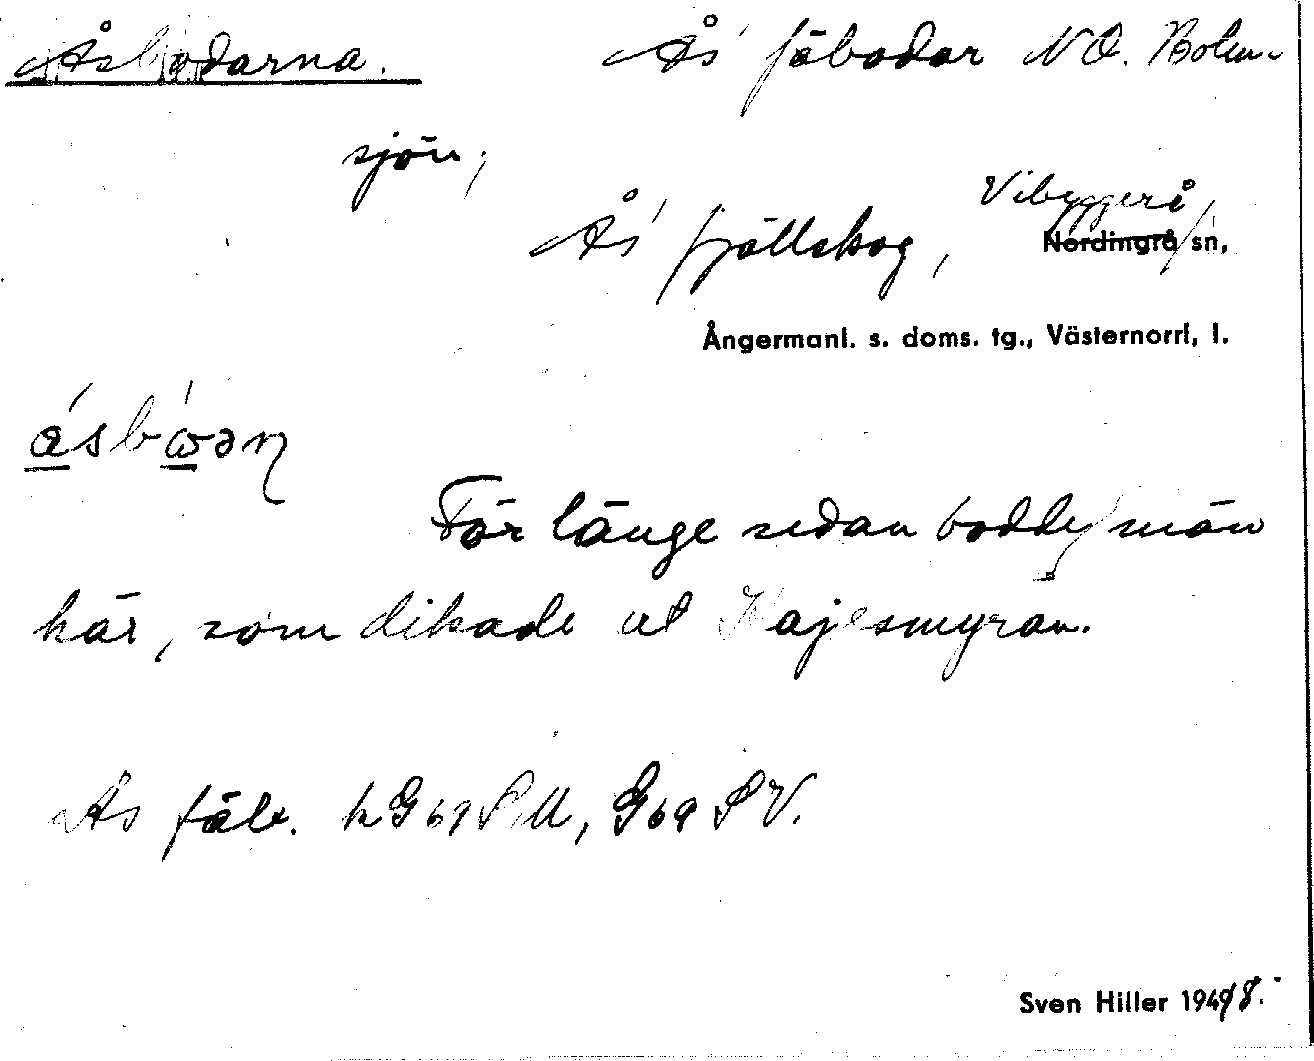 Åsbodarna. Ås fäbodar NO. Bolen-
sjön,
Vibyggerå
Ås fjällskog, Nordingrå sn,
Ångermanl. s. doms. tg., Västernorrl, l.
För länge sedan bodde män
här, som dikade ut Kajesmyran.
Ås fäb. h G69 S.M, G69 S V.
Sven Hiller 1948.